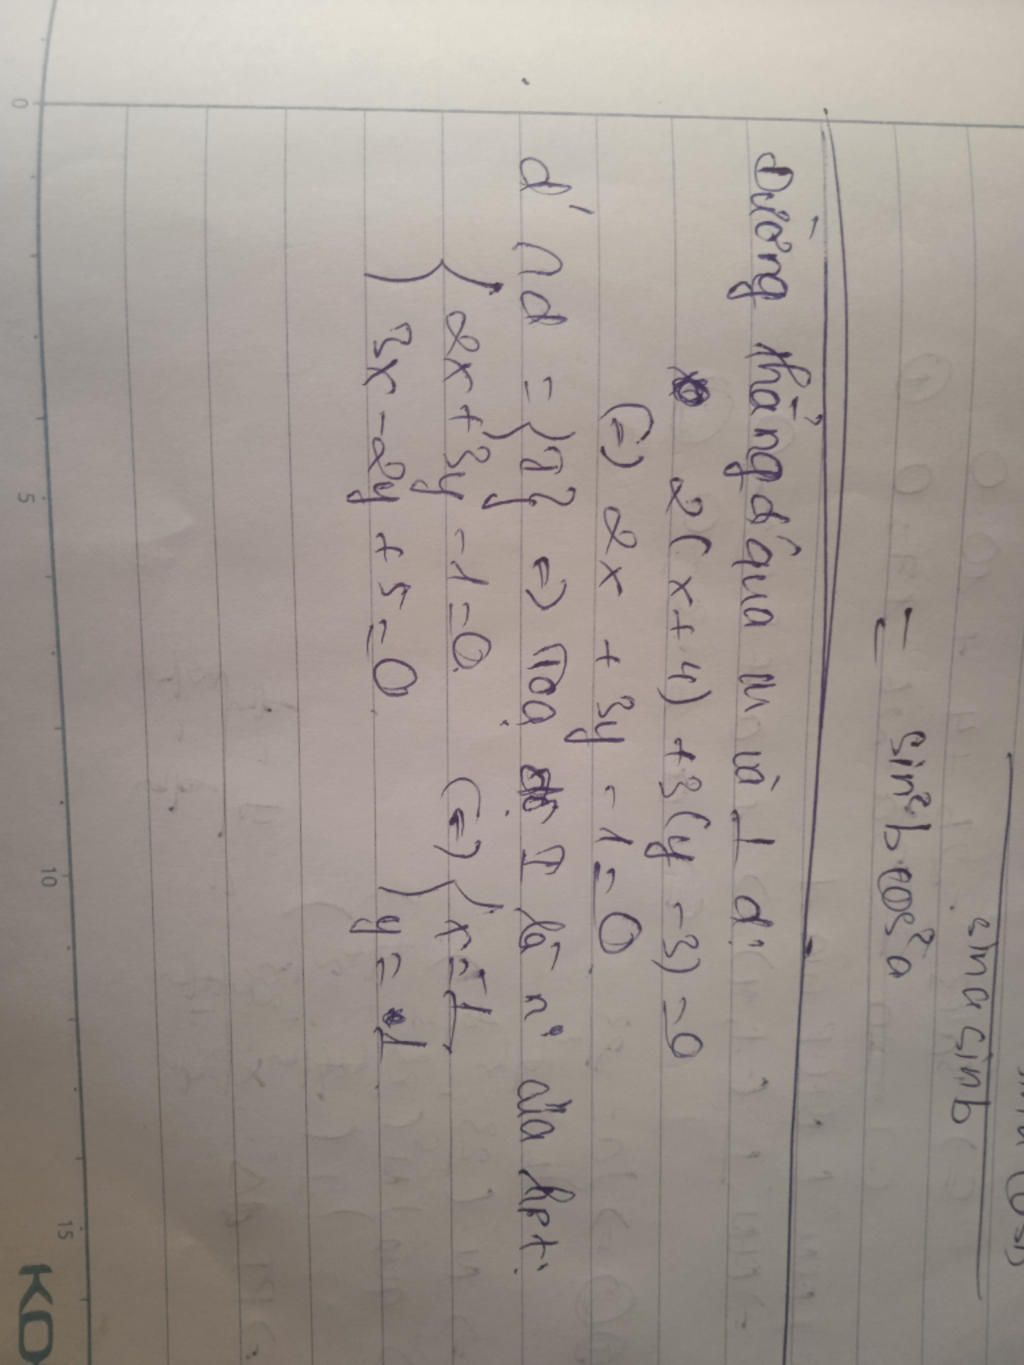 sina sinb
= sin²b cos²a
Đường thẳng d' qua M và ⊥ d:
2(x+4) +3(y -3) =0
(=) 2x + 3y -1=0
d' ∩ d = {I} => Toạ độ I là n° của hpt:
{ 2x+3y -1=0
{ 3x -2y +5=0
(=) { x=-1
{ y = 1
0
5
10
15
KO